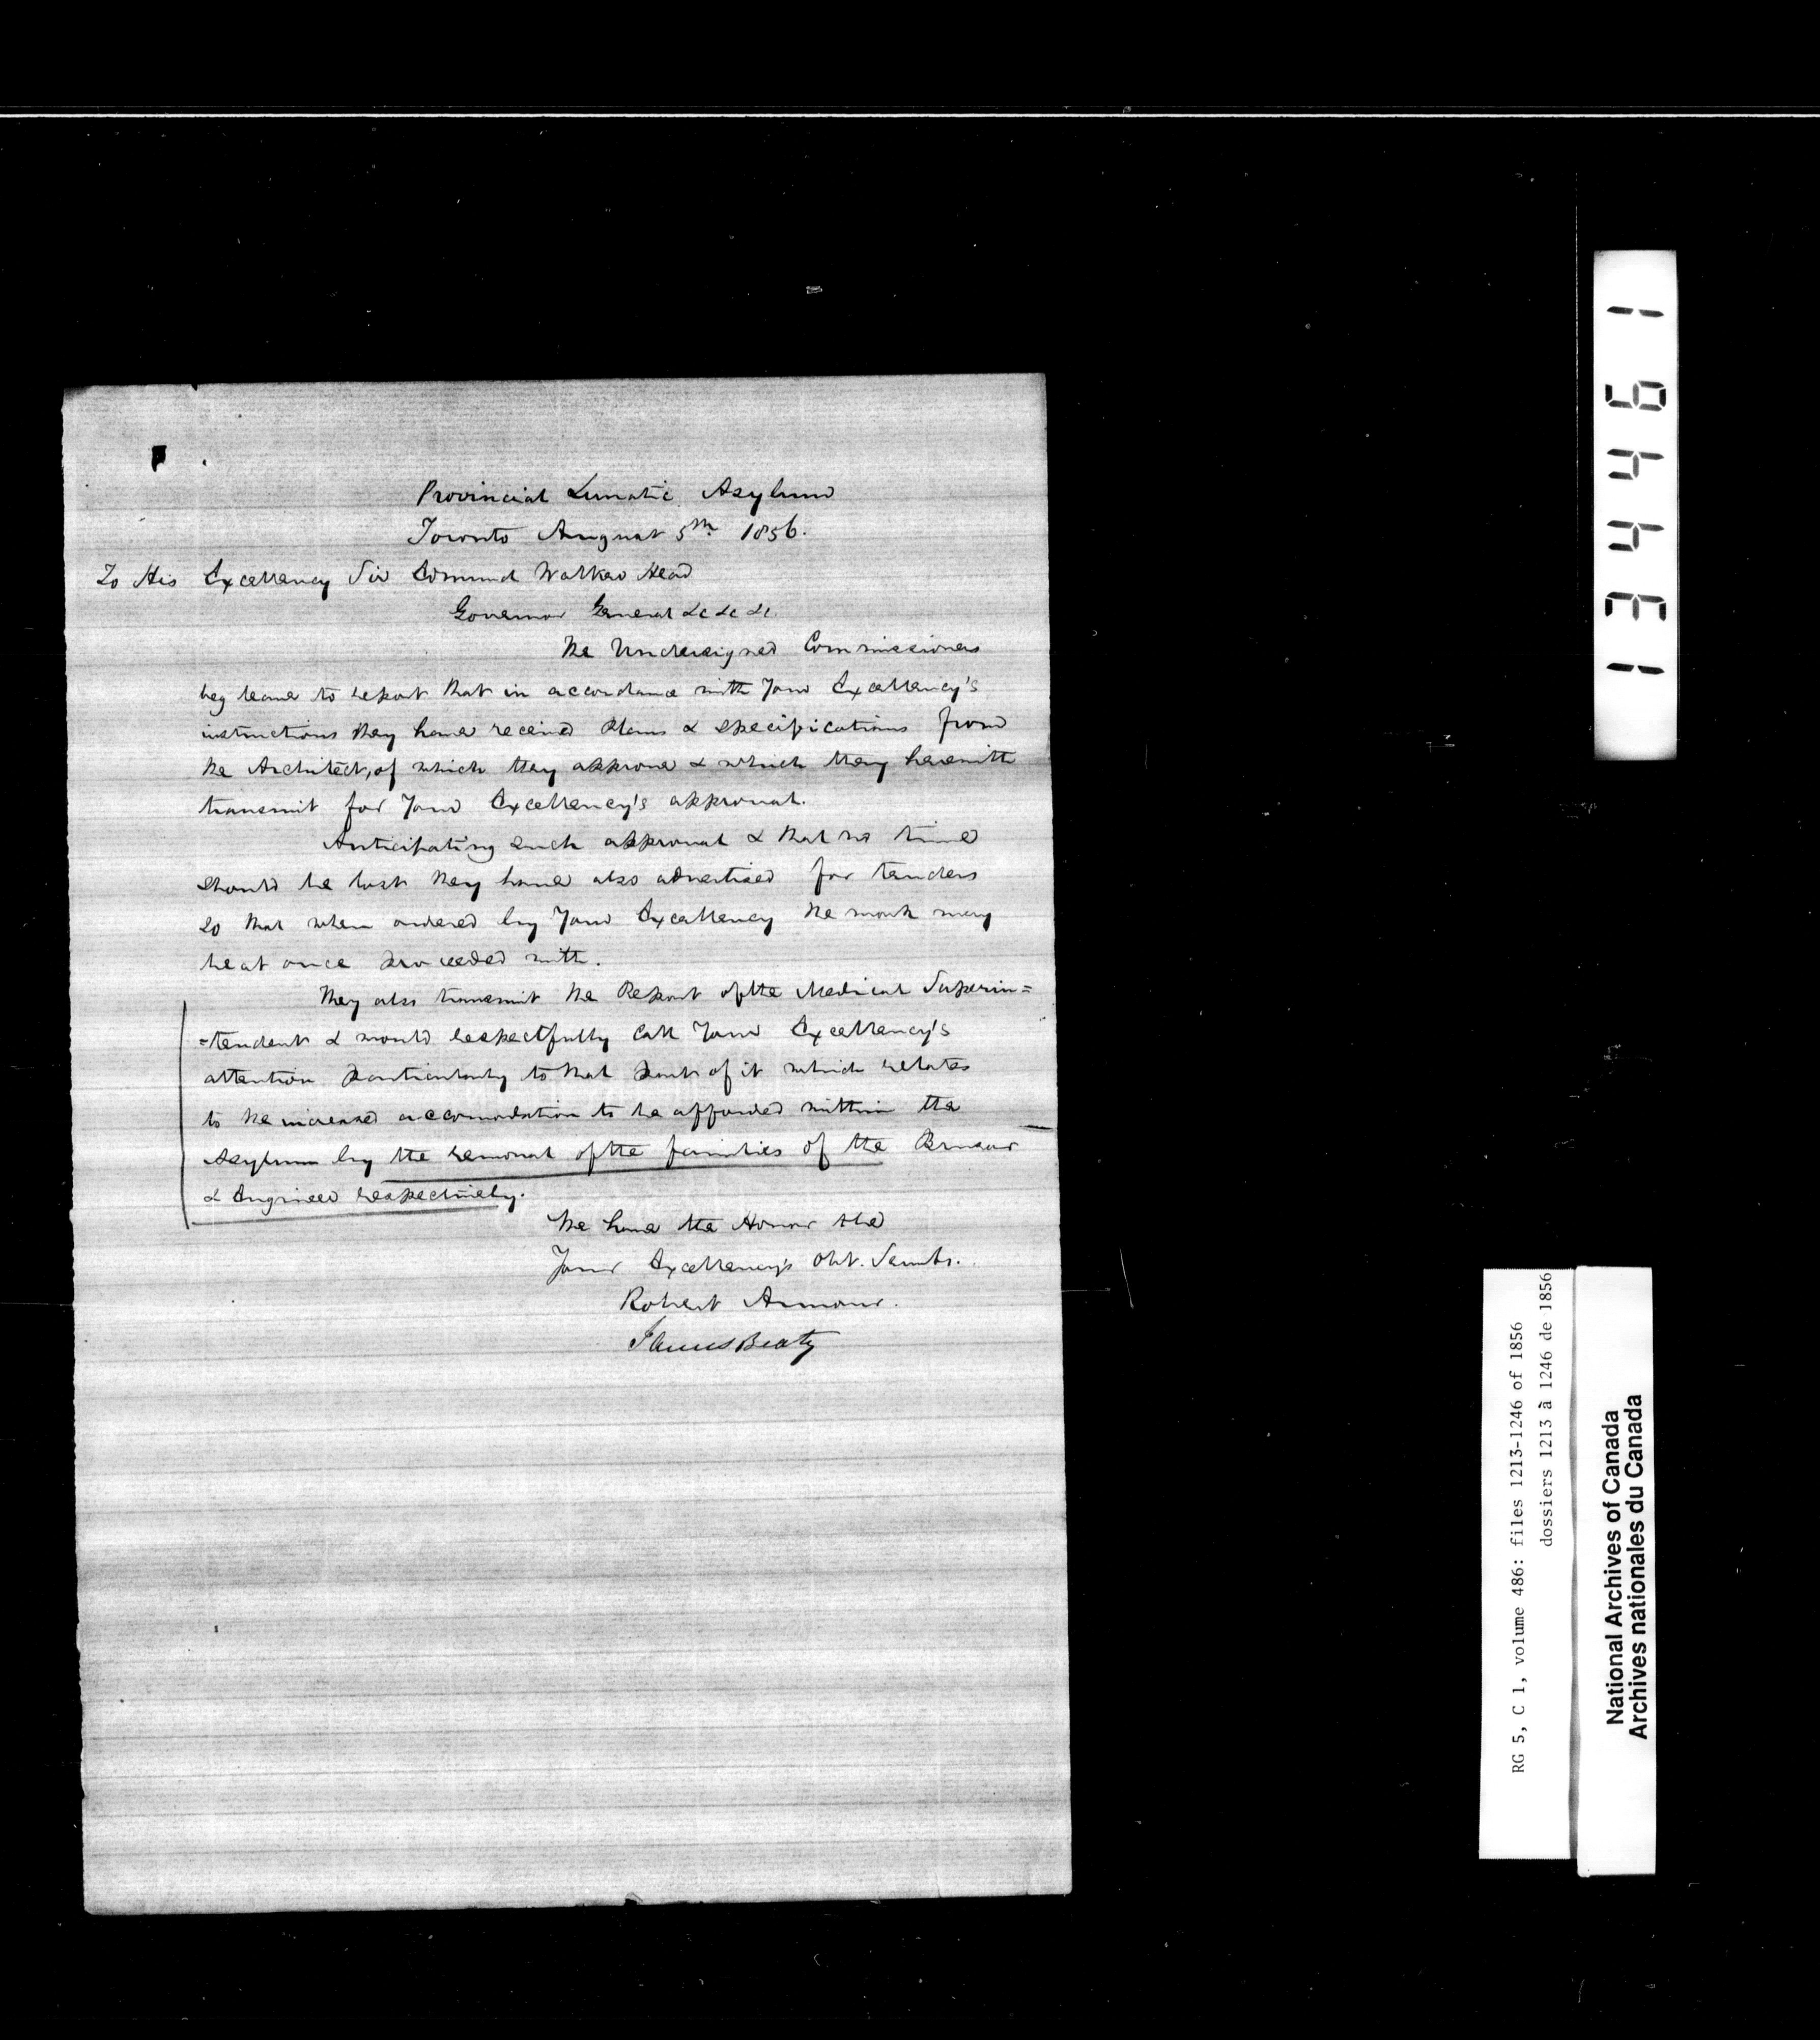 Provincial Lunatic Asylum
Toronto August 5th 1856.
To His Excellency Sir Edmund Walker Head
Governor General &c &c &c.
The Undersigned Commissioners
beg leave to report that in accordance with Your Excellency's
instructions they have received Plans & specifications from
the Architect, of which they approve & which they herewith
transmit for Your Excellency's approval.
Anticipating such approval & that no time
should be lost they have also advertised for tenders
so that when ordered by Your Excellency the work may
be at once proceeded with.
They also transmit the Report of the Medical Superin=
=tendent & would respectfully call Your Excellency's
attention particularly to that part of it which relates
to the increased accomodation to be afforded within the
Asylum by the removal of the families of the Bursar
& Engineer respectively.
We have the Honor to be
Your Excellency's Obt. Servts.
Robert Armour.
James Beaty
134461
RG 5, C 1, volume 486: files 1213-1246 of 1856
dossiers 1213 à 1246 de 1856
National Archives of Canada
Archives nationales du Canada